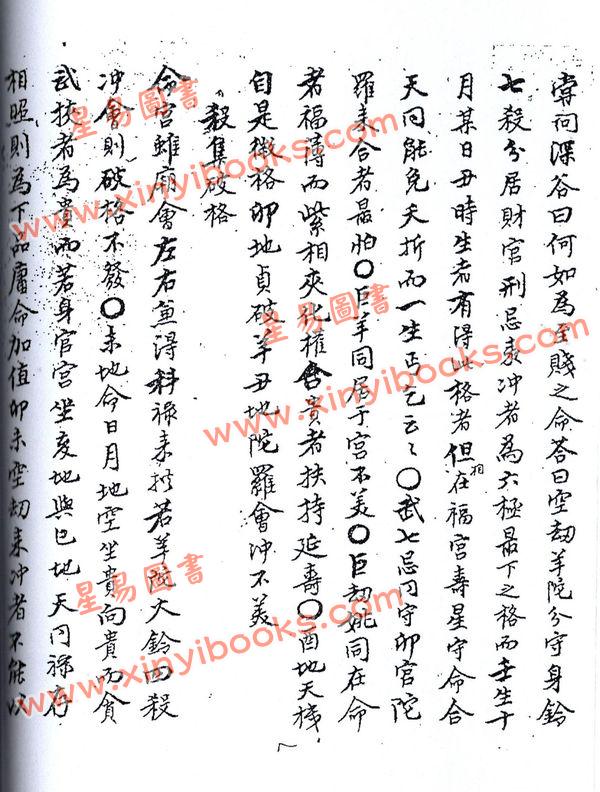 嘗问深谷曰何如為至賤之命荅曰空劫羊陀分守身鈴
七殺分居財官刑忌来冲者為六極最下之格而壬生十
月某日丑時生者有得此格者但在福宮壽星守命合
相
天同能免夭折而一生丐乞云云〇武七忌同守卯官陀
羅来合者最怕〇巨羊同居于宮不美〇巨劫姚同在命
者福薄而紫相夾化權含貴者扶持延壽〇酉地天機
自是微格卯地貞破羊丑地陀羅會冲不美
殺集破格
命宮雖廟會左右兼得科祿来拱若羊陀火鈴四殺
冲會則破格不發〇未地命日月地空坐貴向貴而貧
武扶者為貴而若身官宮坐亥地與巳地天同祿存
相照則為下品庸命加值卯未空劫来冲者不能以
星易圖書
www.xinyibooks.com
星易圖書
www.xinyibooks.com
星易圖書
www.xinyibooks.com